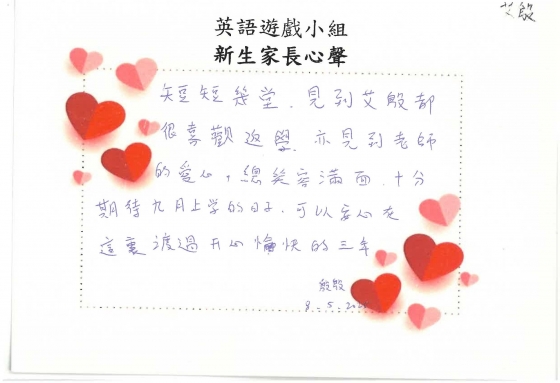 艾殷
英語遊戲小組
新生家長心聲
短短幾堂,見到艾殷都
很喜歡返學,亦見到老師
的愛心,總笑容滿面,十分
期待九月上學的日子,可以安心在
這裏渡過開心愉快的三年
殷殷
8 - 5 -